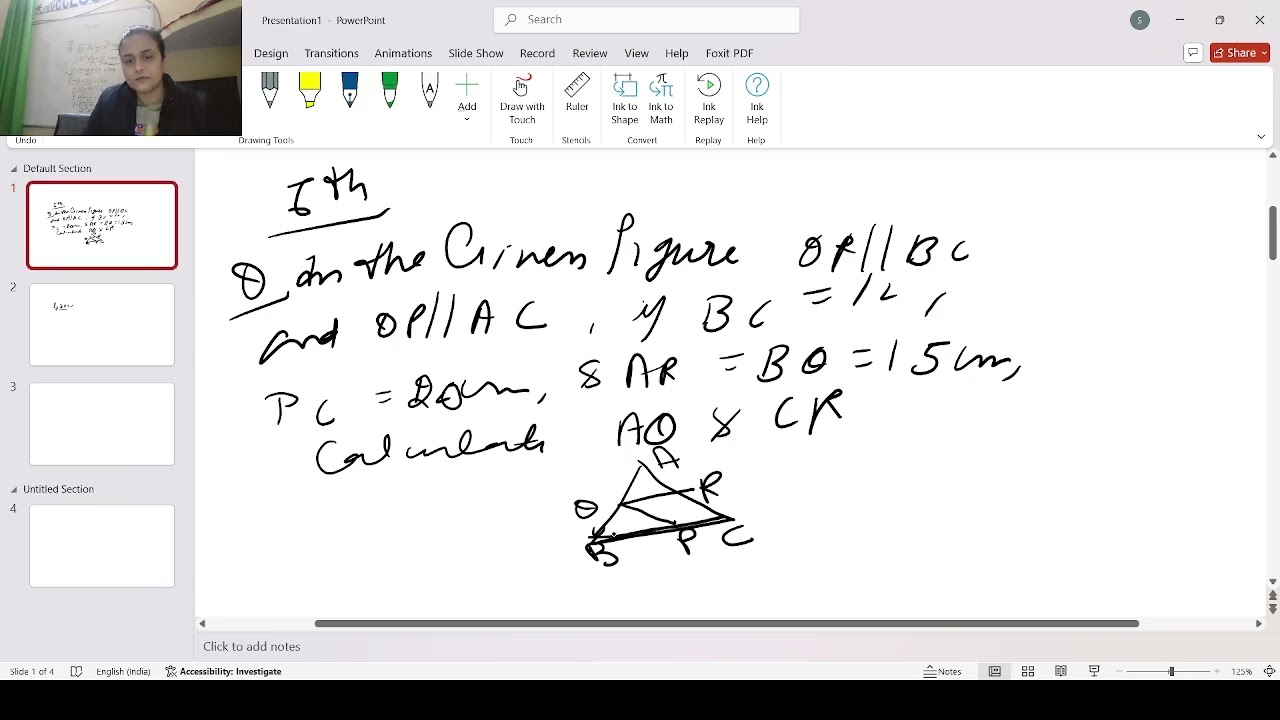 Presentation1 - PowerPoint
Search
S
Share
Design Transitions Animations Slide Show Record Review View Help Foxit PDF
Add
Draw with Touch
Ruler
Ink to Shape
Ink to Math
Ink Replay
Ink Help
Undo
Drawing Tools
Touch
Stencils
Convert
Replay
Help
Default Section
1
2
3
Untitled Section
4
Ith
Q in the Given figure QR//BC
and QP//AC, if BC = 12,
PC = 20cm, & AR = BQ = 15cm,
Calculate AQ & CR
A
Q
R
B
P
C
Click to add notes
Slide 1 of 4
English (India)
Accessibility: Investigate
Notes
125%